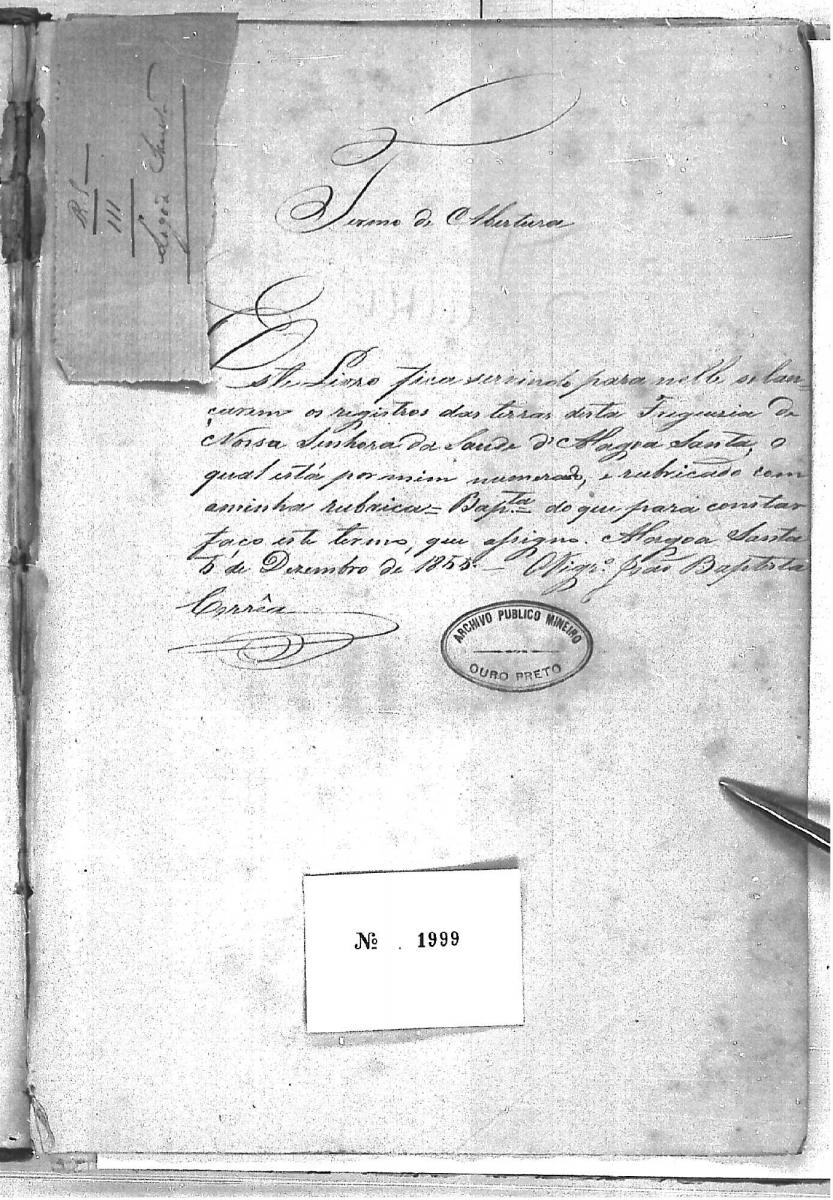 R.P.
111
Lagôa Santa
Termo de Abertura
Este Livro fica servindo para nelle se lan=
carem os registros das terras desta Freguezia de
Nossa Senhora da Saude d'Alagoa Santa, o
qual está por mim numerado, e rubricado com
aminha rubrica = Bapta= do que para constar
faco este termo, que assigno. Alagoa Santa
5 de Dezembro de 1855. O Vigro João Baptista
Corrêa
ARCHIVO PUBLICO MINEIRO
OURO PRETO
No. 1999